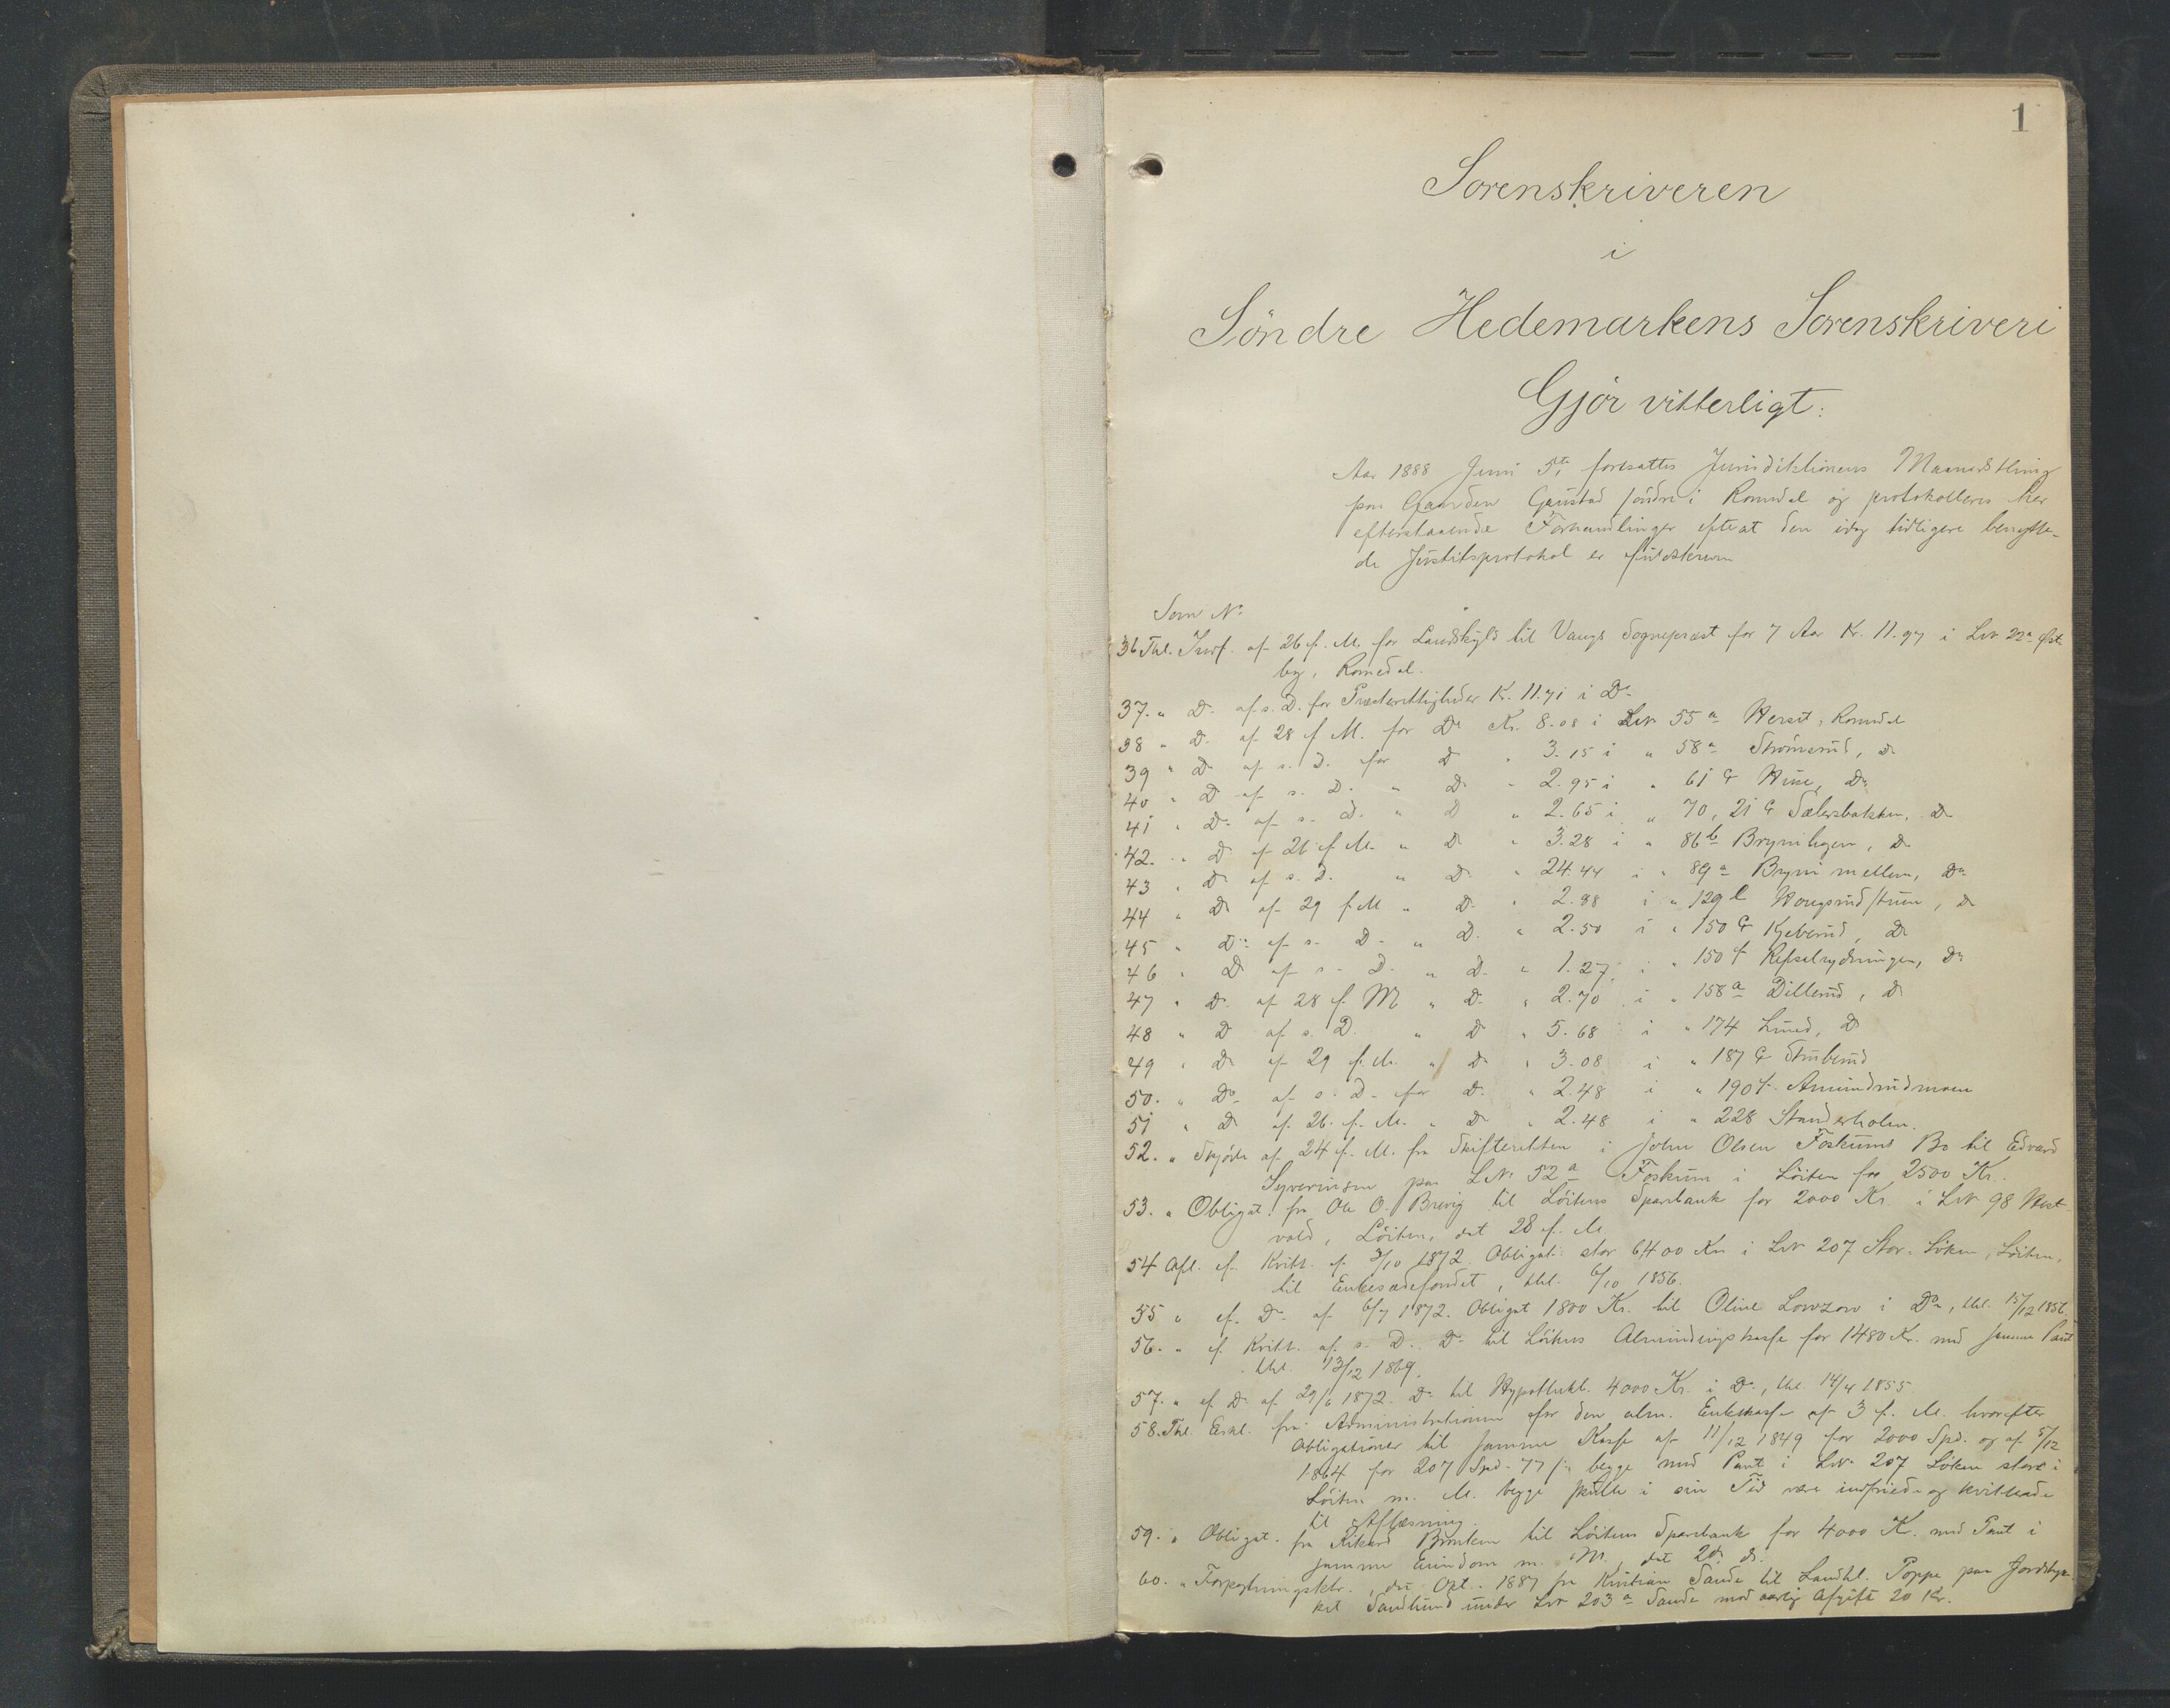 1
Sorenskriveren
i
Söndre Hedemarkens Sorenskriveri
Gjör vitterligt:
Aar 1888 Juni 5te fortsattes Jurisdiktionens Maanedsthing
paa Gaarden Gaustad söndre i Romedal og protokolleres her
efterstaaende Forhandlinger efterat den idag tidligere benytte-
de Justitsprotokol er fuldskreven
Som No
36 Thl. Inrf. af 26 f. M. for Landskyld til Vangs Sognepræst for 7 Aar Kr. 11.97 i Lnr 22a Øst
by, Romedal.
37. " Do af s. D. for Præsterettigheder K. 11.71 i Do
38 " Do af 28 f M. for Do Kr. 8.08 i Lnr 55a Romedal
39 " Do af s. D. for D " 3.15 i " 58a Strömsrud, do
40 " D af s. D. " D. " 2.95 i " 61 Do
41 " Do af s. D. " D " 2.65 i " 70, 21 Do
42. " D af 26 f. M. " D " 3.28 i " 86b Brynihagen, Do
43 " Do af s. D. " D. " 24.44 i " 89a Bryni mellem, Do
44 " Do af 29 f. M " D. " 2.98 i " 129 Do
45 " Do af s. D. " D. " 2.50 i " 150 Kjeberud, Do
46 " D af s. D. " D. " 1.27 i " 150f Do
47 " Do af 28 f. M " D. " 2.70 i " 158a Dillerud, D
48 " D af s. D. " D " 5.68 i " 174 Lund, D
49 " Do af 29 f. M. " Do " 3.08 i " 187 Stubrud
50. " Do af s. D. for D. " 2.48 i " 190f. Amundrudmoen
51 " D af 26. f. M. " D " 2.48 i " 228 Standerholen.
52. " Skjöde af 24 f. M. fra Skifteretten i John Olsen Foskums Bo til Edvard
Syverinsen paa LNo 52a Foskum i Löiten for 2500 Kr.
53. " Obligat. fra Ole O. Brevig til Löitens Sparebank for 2000 Kr i Lnr 98 West-
vold, Löiten, dat 28 f. M.
54 Afl. ef. Kvitt. af 3/10 1872. Obligat. stor 6400 Kr i Lnr 207 Stor-Löken, Löiten,
til Enkesædefondet, thl. 6/10 1856.
55 " ef. Do af 6/7 1872. Obligat 1800 Kr. til Oline Lowzow i Do, thl. 15/12 1856.
56. " ef. Kvitt. af s. D. Do til Löitens Almindingskasse for 1480 Kr. med samme Pant
thl. 13/12 1869.
57. " ef. Do af 29/6 1872. Do til Hypothekb. 4000 Kr. i Do, thl. 14/4 1855
58. Thl. Erkl. fra Administrationen for den alm. Enkekasse af 3 f. M. hvorefter
Obligationer til samme Kasse af 11/12 1849 for 2000 Spd. og af 5/12
1864 for 207 Spd. 77 begge med Pant i Lnr 207 Löken store i
Löiten m. M. begge skulle i sin Tid være indfriede og kvitterede
til Aflæsning.
59. " Obligat. fra Rikard Brenken til Löitens Sparebank for 4000 Kr. med Pant i
samme Eiendom m. M., dat 2d ds.
60. " Forpagtningsktr., dat Okt. 1887 fra Kristian Sande til Landhl. Poppe paa Jordstyk-
ket Sandlund under Lnr 203a Sande mod aarlig Afgift 20 Kr.